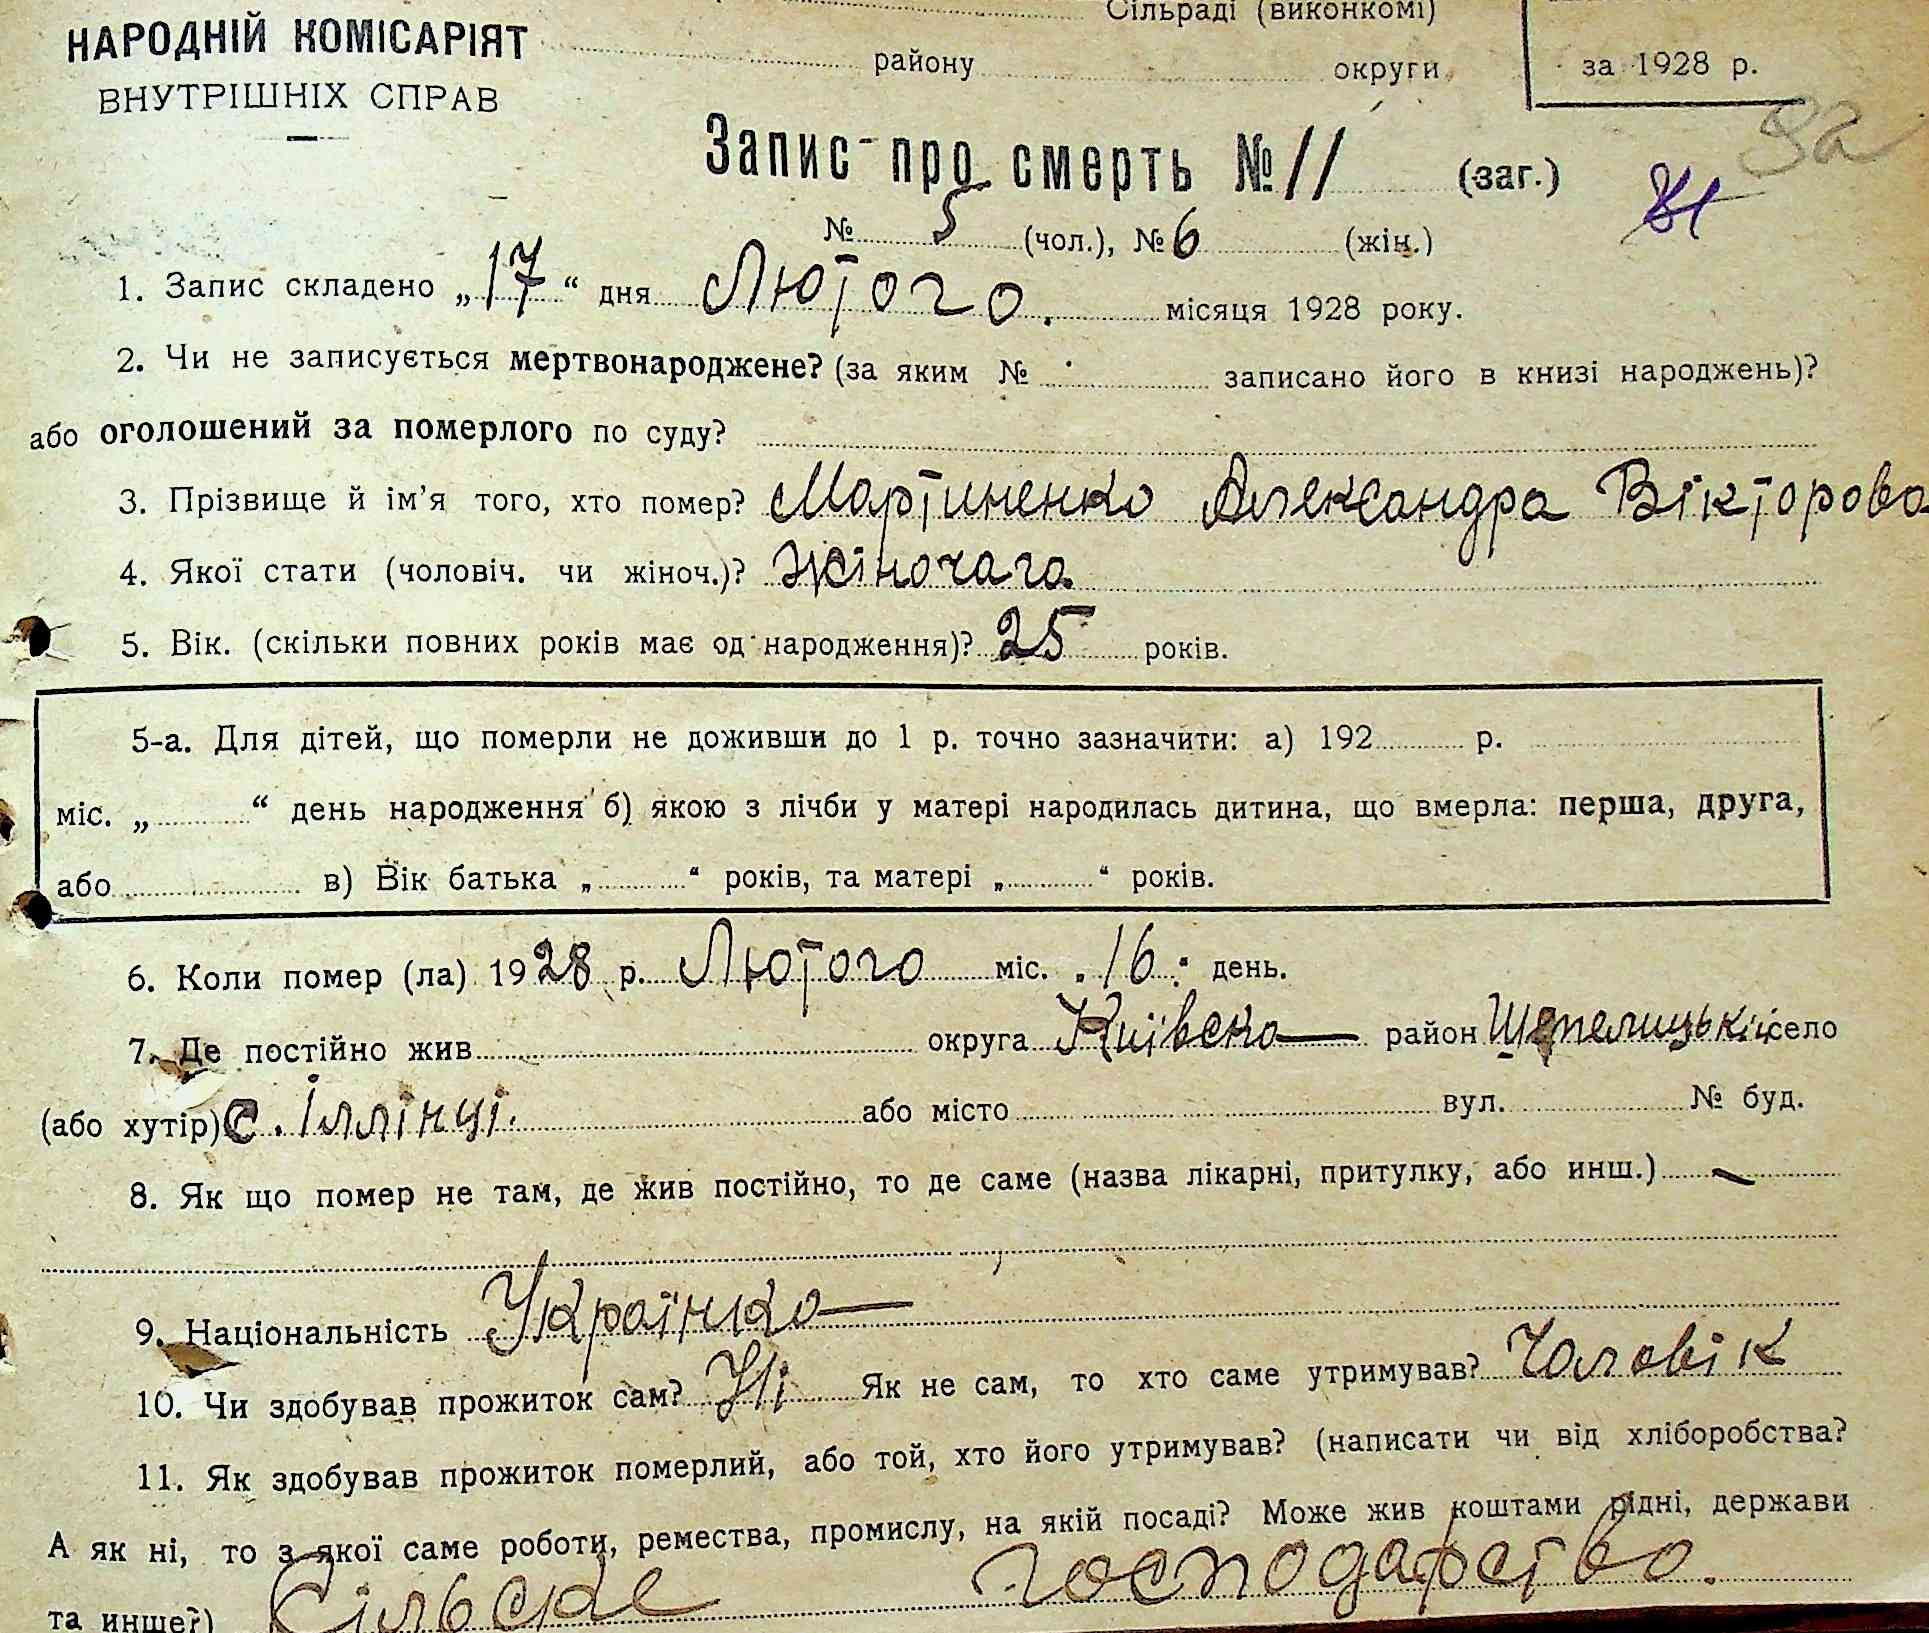 Сільраді (виконкомі)
НАРОДНІЙ КОМІСАРІЯТ
ВНУТРІШНІХ СПРАВ
району округи
за 1928 р.
Запис про смерть № 11 (заг.)
№ 5 (чол.), № 6 (жін.)
1. Запис складено „17“ дня Лютого. місяця 1928 року.
2. Чи не записується мертвонароджене? (за яким № записано його в книзі народжень)?
або оголошений за померлого по суду?
3. Прізвище й ім’я того, хто помер? Мартиненко Александра Вікторова
4. Якої стати (чоловіч. чи жіноч.)? Жіночага
5. Вік. (скільки повних років має од народження)? 25 років.
5-а. Для дітей, що померли не доживши до 1 р. точно зазначити: а) 192 р.
міс. „ “ день народження б) якою з лічби у матері народилась дитина, що вмерла: перша, друга,
або в) Вік батька „ “ років, та матері „ “ років.
6. Коли помер (ла) 1928 р. Лютого міс. „16“ день.
7. Де постійно жив округа Київска район Шепелицький село
(або хутір) с. Іллінці. або місто вул. № буд.
8. Як що помер не там, де жив постійно, то де саме (назва лікарні, притулку, або инш.) —
9. Національність Українка
10. Чи здобував прожиток сам? Ні Як не сам, то хто саме утримував? Чоловік
11. Як здобував прожиток померлий, або той, хто його утримував? (написати чи від хліборобства?
А як ні, то з якої саме роботи, ремества, промислу, на якій посаді? Може жив коштами рідні, держави
та инше?) Сільське господарство.